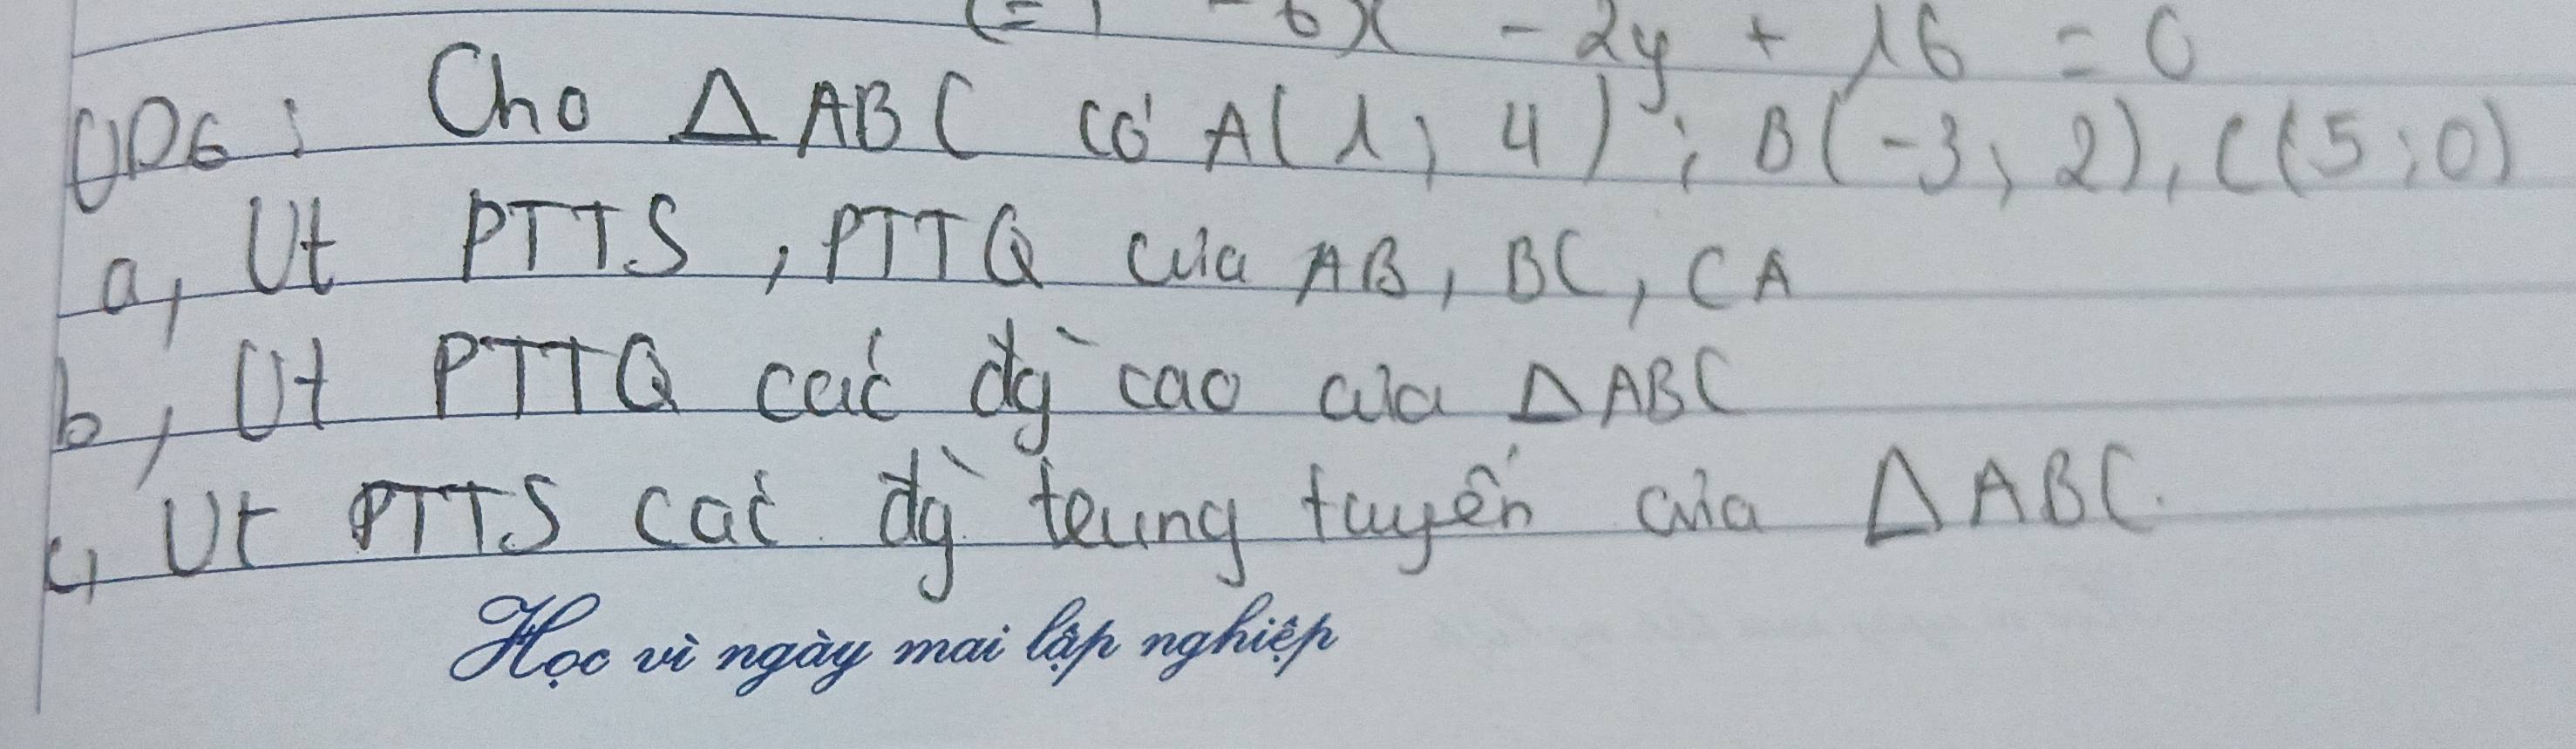 - 6x - 2y + 16 = 0
VD6: Cho Δ ABC có A(1; 4); B(-3; 2), C(5; 0)
a, Vt PTTS, PTTQ của AB, BC, CA
b, Vt PTTQ các đg` cao của Δ ABC
c, Vt PTTS các đg` trung tuyến của Δ ABC.
Học vì ngày mai lập nghiệp